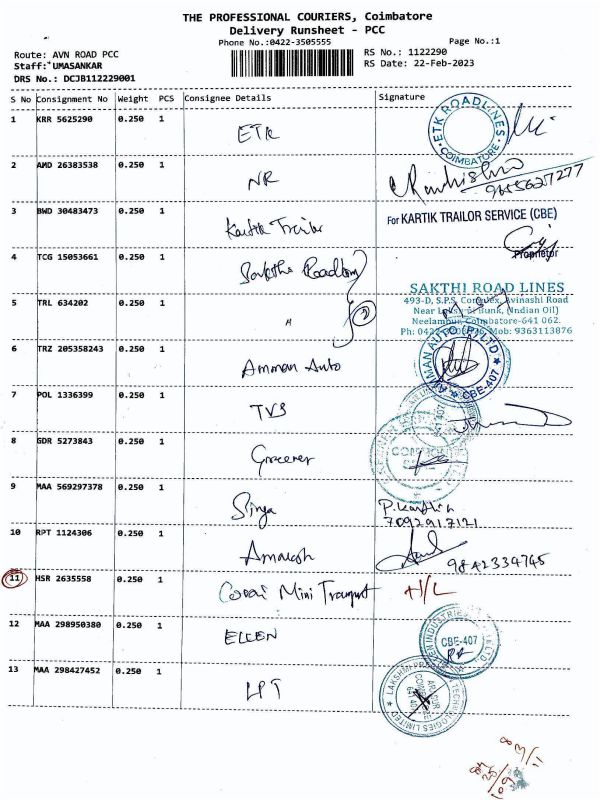 THE PROFESSIONAL COURIERS, Coimbatore
Delivery Runsheet - PCC
Phone No.:0422-3505555
Page No.:1
Route: AVN ROAD PCC
RS No.: 1122290
Staff: UMASANKAR
RS Date: 22-Feb-2023
DRS No.: DCJB112229001
S No Consignment No Weight PCS Consignee Details Signature
1 KRR 5625290 0.250 1 ETK ETK ROADLINES COIMBATORE
2 AMD 26383538 0.250 1 NR 9655627277
3 BWD 30483473 0.250 1 Kartik Trailor For KARTIK TRAILOR SERVICE (CBE)
Proprietor
4 TCG 15053661 0.250 1 Sakthi Roadlines
SAKTHI ROAD LINES
5 TRL 634202 0.250 1 " 2 493-D, S.P.S. Complex, Avinashi Road
Bunk, (Indian Oil)
Neelambur, Coimbatore-641 062.
Mob: 9363113876
6 TRZ 205358243 0.250 1 Amman Auto AMMAN AUTO (P) LTD CBE-407
7 POL 1336399 0.250 1 TVS
8 GDR 5273843 0.250 1
9 MAA 569297378 0.250 1 P. Karthik
7092917121
10 RPT 1124306 0.250 1 9842334745
11 HSR 2635558 0.250 1 Covai Mini Transport H/L
12 MAA 298950380 0.250 1 ELLEN INDUSTRIES CBE-407
13 MAA 298427452 0.250 1 LPT TECHNOLOGIES LIMITED